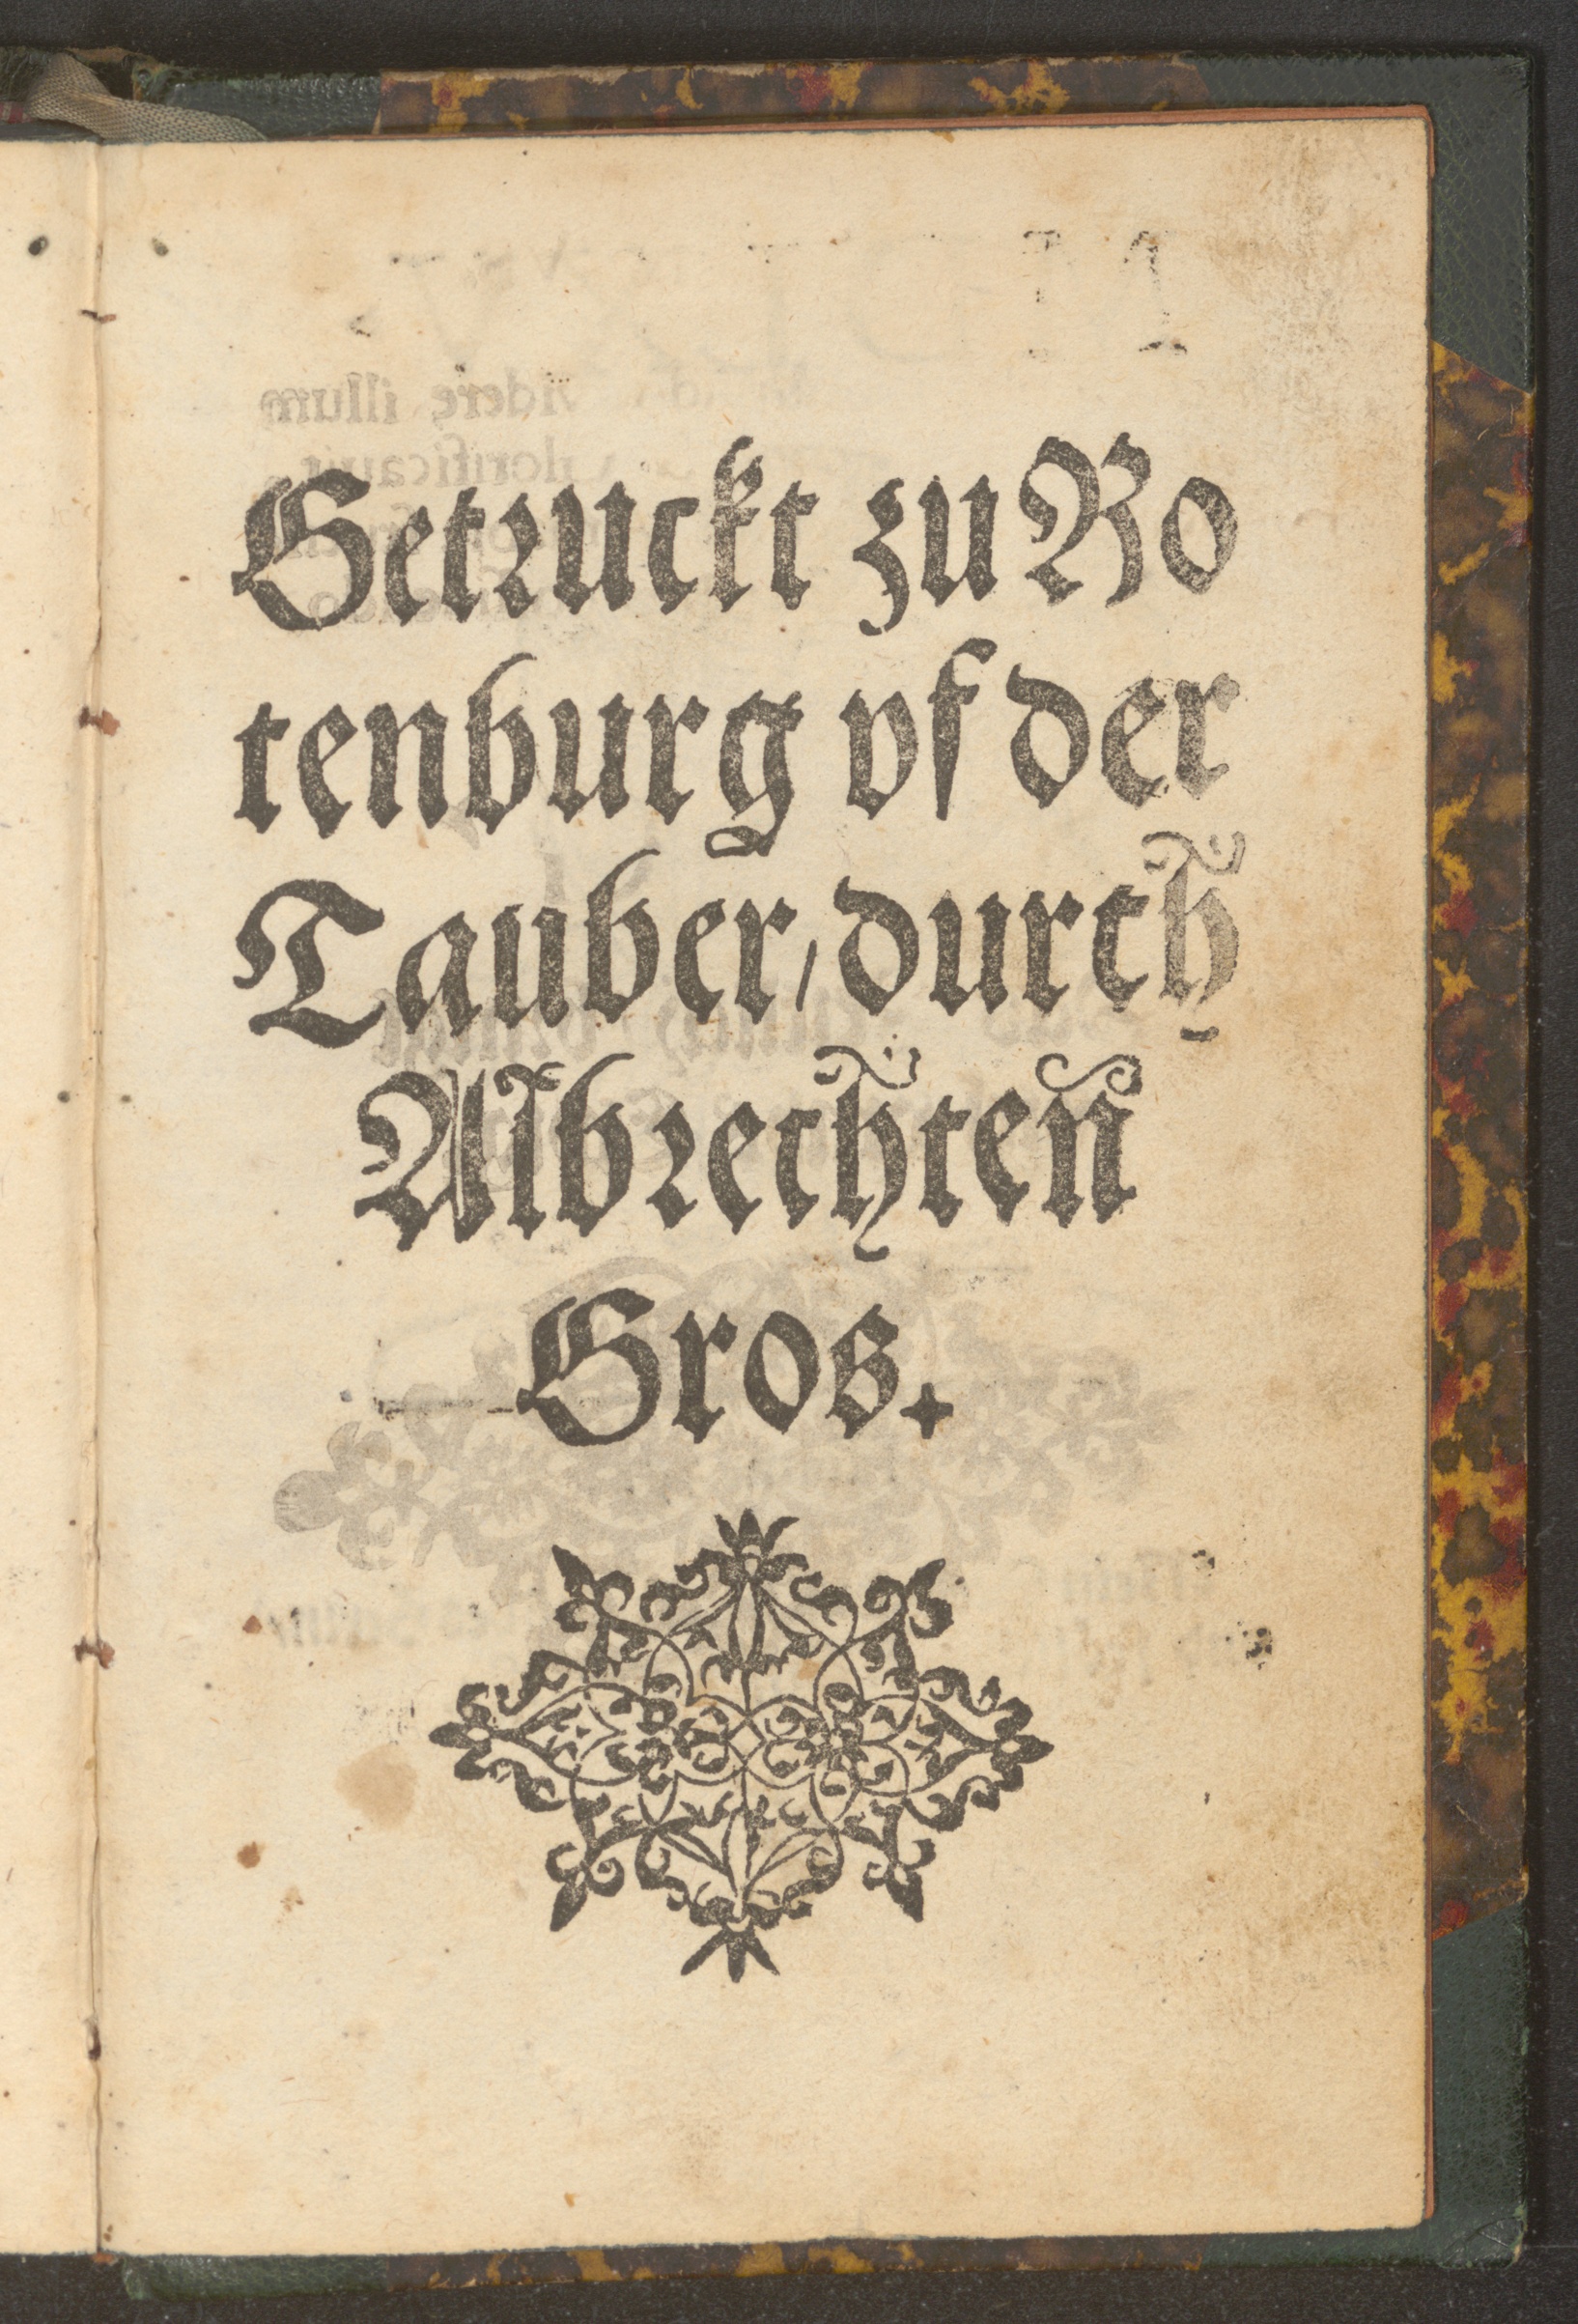 Getruckt zu Ro
tenburg vf der
Tauber / durch
Albrechten
Gros.